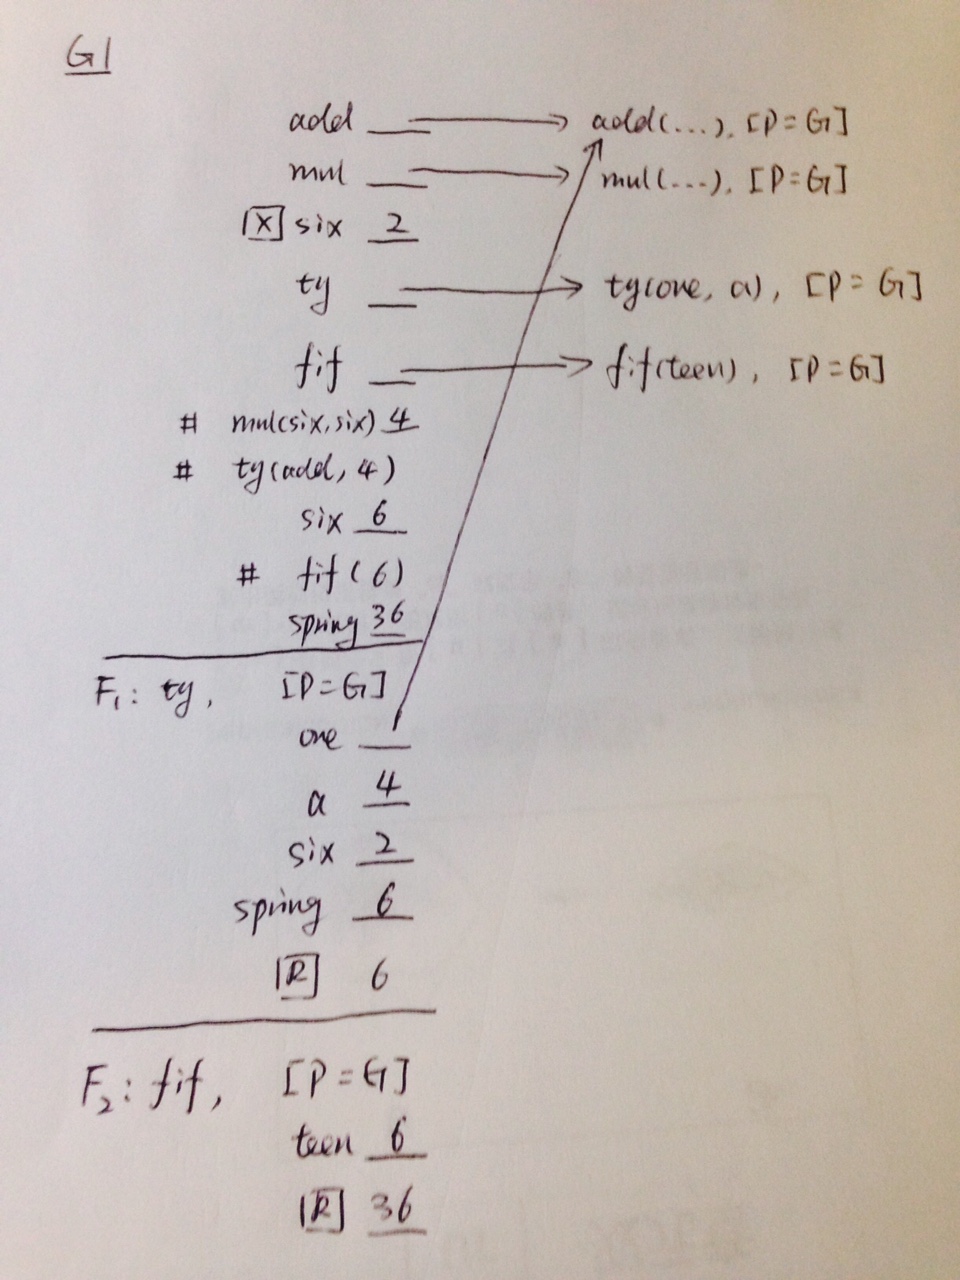 G1
add → add(...), [P=G]
mul → mul(...), [P=G]
X six 2
ty → ty(one, a), [P=G]
fif → fif(teen), [P=G]
# mul(six, six) 4
# ty(add, 4)
six 6
# fif(6)
spring 36
F₁: ty, [P=G]
one
a 4
six 2
spring 6
R 6
F₂: fif, [P=G]
teen 6
R 36